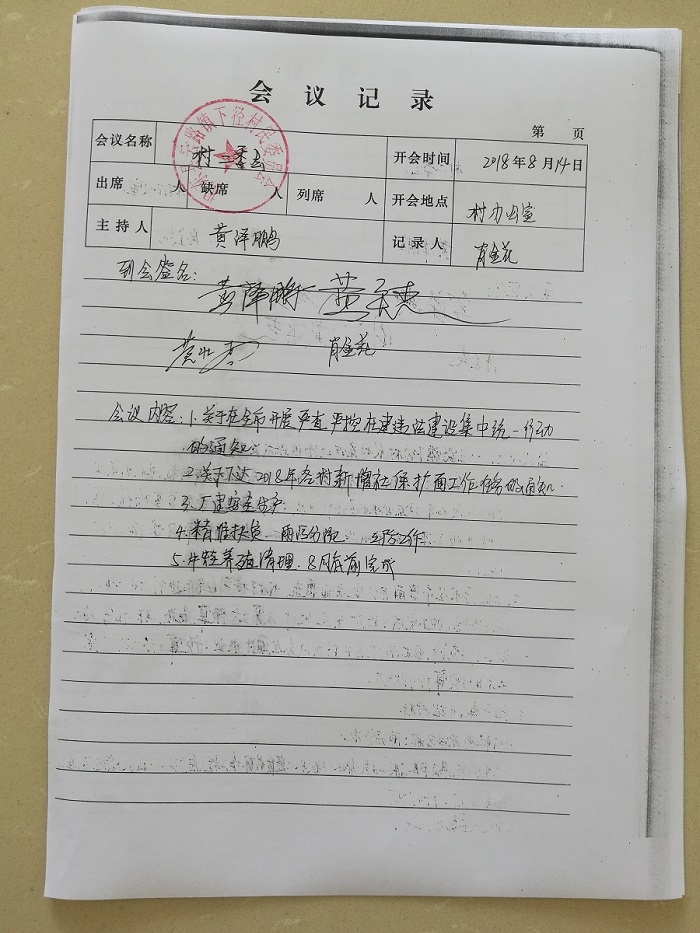 会议记录
第 页
会议名称 村三委会 开会时间 2018年8月14日
出席 人 缺席 人 列席 人 开会地点 村办公室
主持人 黄泽鹏 记录人 肖金花
到会签名:
黄泽鹏
肖金花
会议内容:1.关于在全市开展严查严控在建违法建设集中统一行动
的通知.
2.关于下达2018年各村新增社保扩面工作任务的通知.
3.厂建安全生产
4.精准扶贫 雨污分流 三防工作.
5.牛蛙养殖清理.8月底前完成